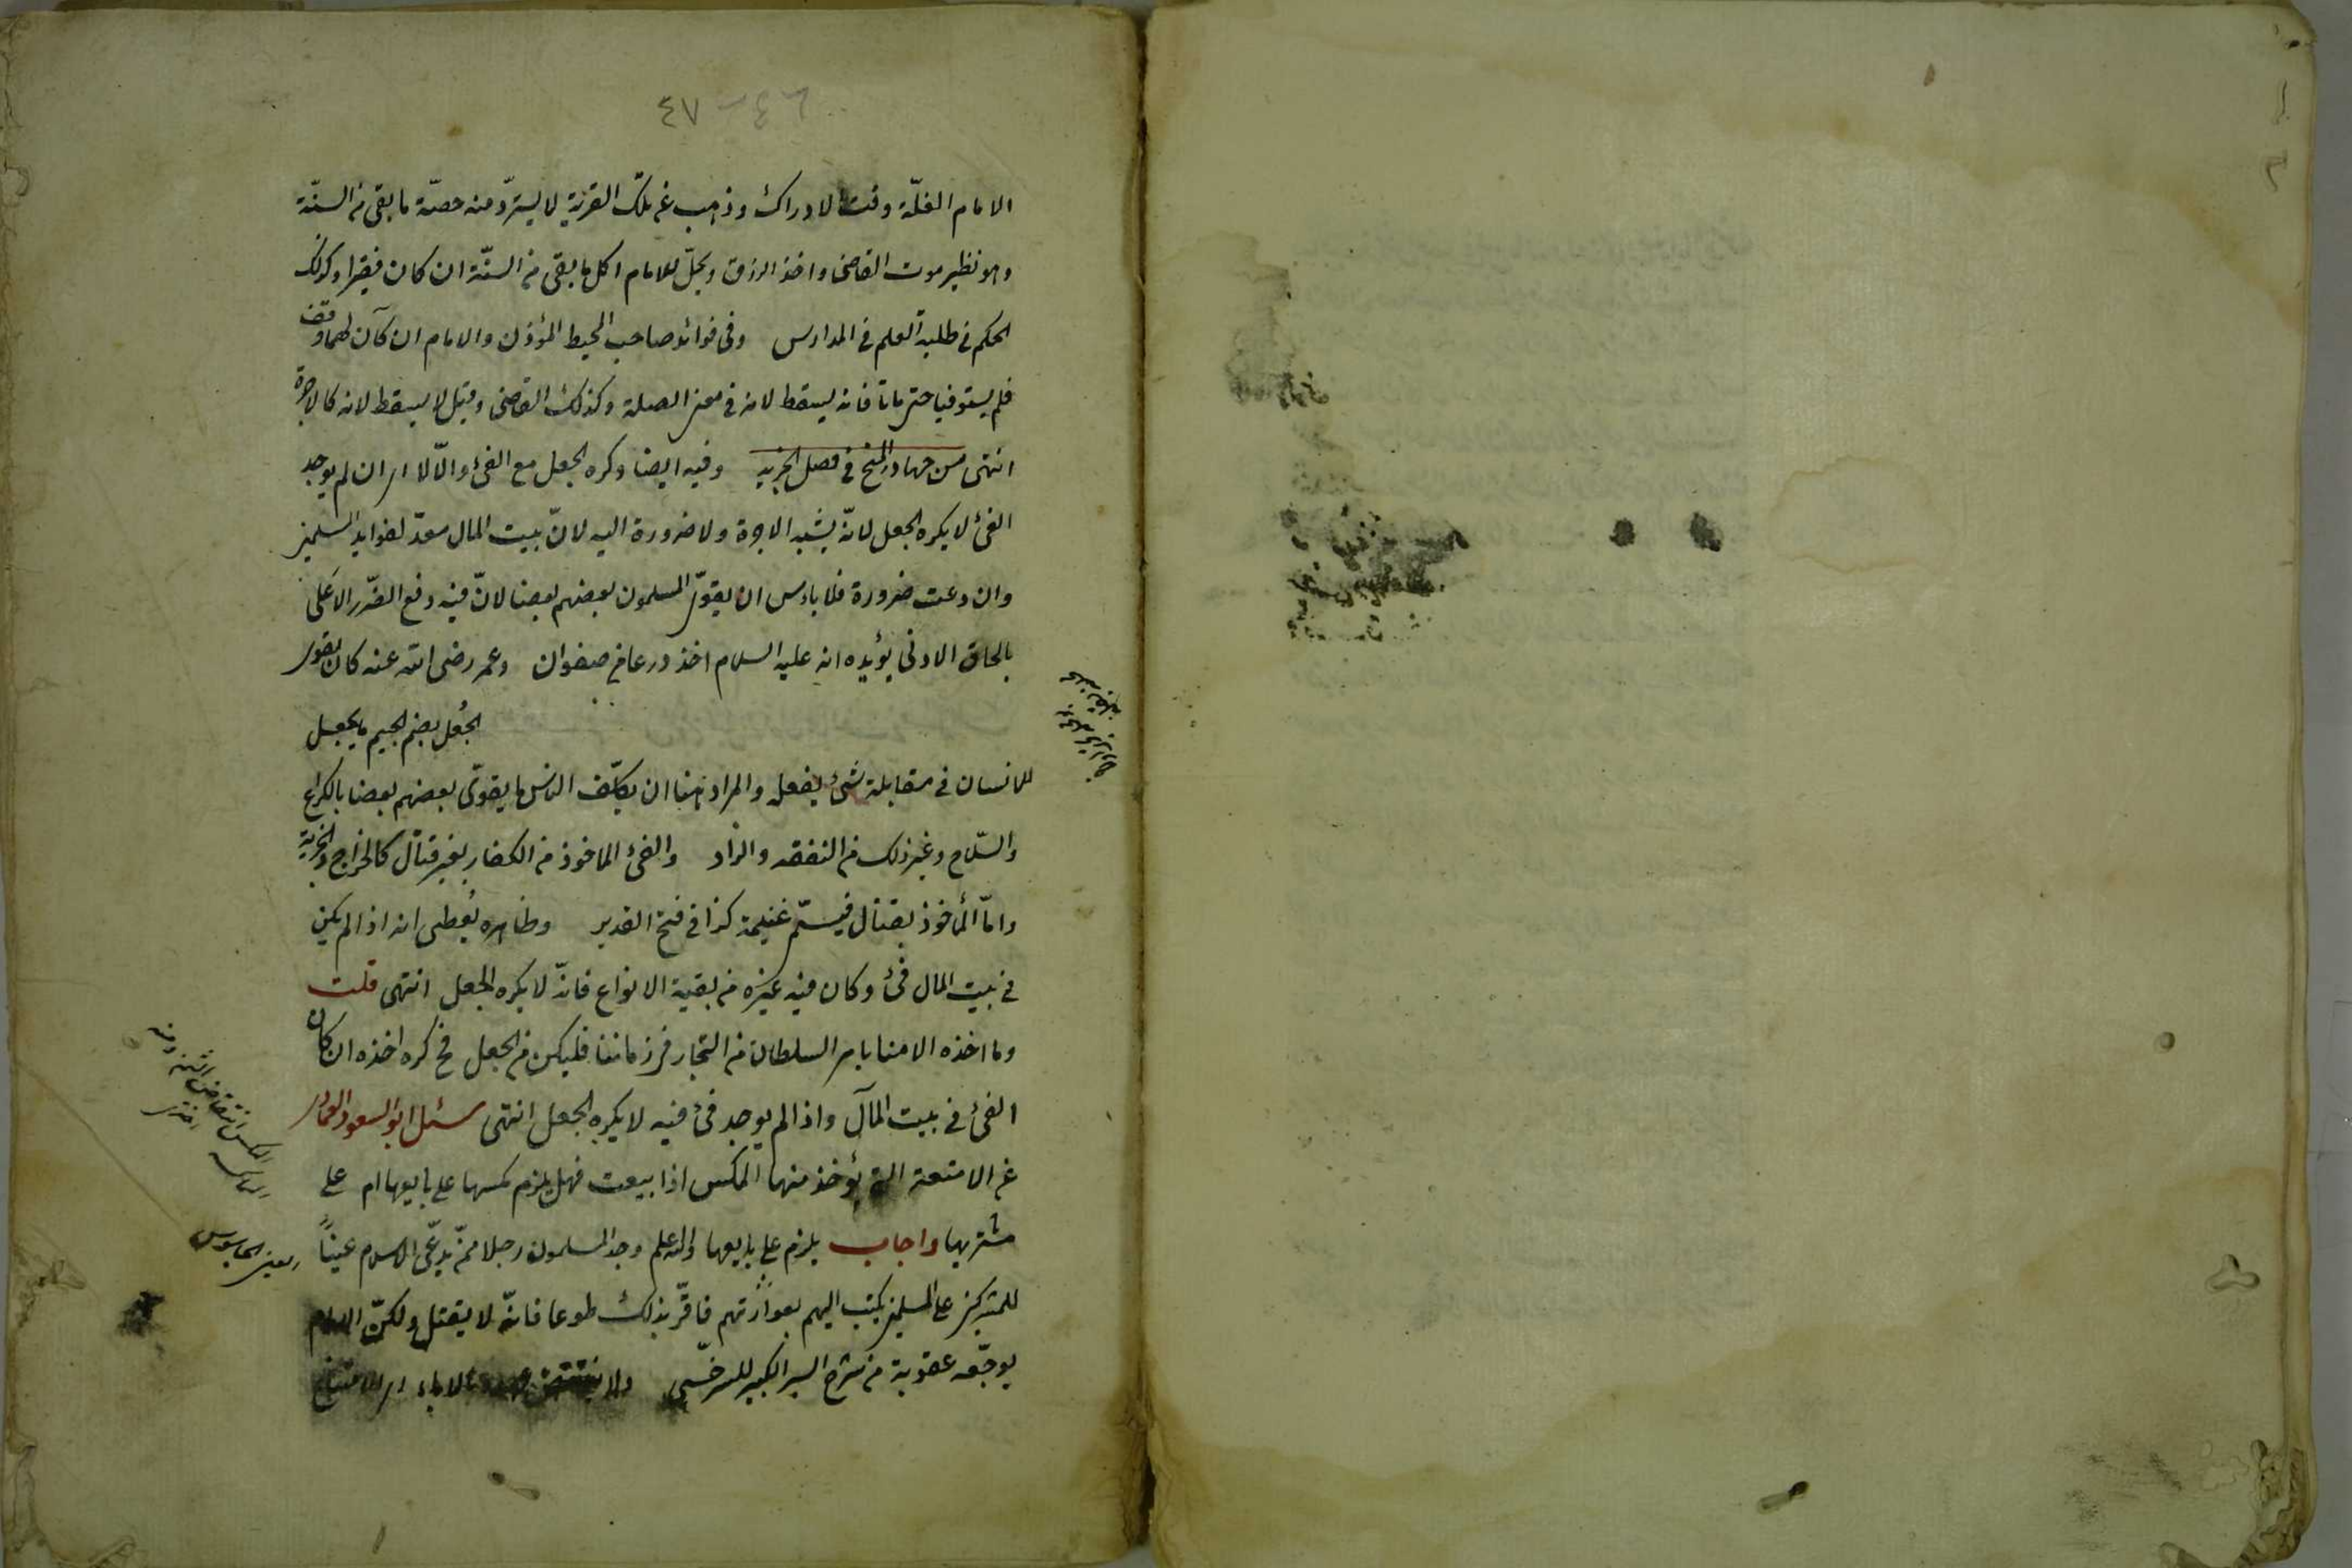 ٤٦ - ٤٧
الامام الغلّة وقت الادراك وذهب عن تلك القرية لا يستردّ منه حصّة ما بقى من السنّة
وهو نظير موت القاضى واخذ الرزق ويحلّ للامام اكل ما بقى من السنّة ان كان فقيرا وكذلك
الحكم فى طلبة العلم فى المدارس وفى فوائد صاحب المحيط المؤذن والامام ان كان لهما وقف
فلم يستوفيا حتى ماتا فانه يسقط لانه فى معنى الصلة وكذلك القاضى وقيل لا يسقط لانه كالاجرة
انتهى من جهاد المنح فى فصل الجزيه وفيه ايضا وكره الجعل مع الفئ والّا لا اى ان لم يوجد
الفئ لا يكره الجعل لانّه يشبه الاجرة ولا ضرورة اليه لانّ بيت المال معدّ لنوايب المسلمين
وان دعت ضرورة فلا باس ان يقوّى المسلمون بعضهم بعضا لانّ فيه دفع الضّرر الاعلى
بالحاق الادنى يؤيده انه عليه السلام اخذ درعا من صفوان وعمر رضى الله عنه كان يقوى
الجُعل بضم الجيم ما يجعل
للانسان فى مقابلة شئ يفعله والمراد هنا ان يكلّف الناس ما يقوّى بعضهم بعضا بالكراع
والسّلاح وغير ذلك من النفقه والزاد والفئ الماخوذ من الكفار بغير قتال كالخراج والجزية
وامّا المأخوذ بقتال فيسمّى غنيمة كذا فى فتح القدير وظاهره يُعطى انه اذا لم يكن
فى بيت المال فئ وكان فيه غيره من بقية الانواع فانّه لا يكره الجعل انتهى قلت
وما اخذه الامنا بامر السلطان من التجار فى زماننا فليكن من الجعل فح كره اخذه ان كان
الفئ فى بيت المال واذا لم يوجد فئ فيه لا يكره الجعل انتهى سئل ابو السعود العمادى
عن الامتعة التى يؤخذ منها المكس اذا بيعت فهل يلزم مكسها على بايعها ام على
مشتريها واجاب يلزم على بايعها والله علم وجد المسلمون رجلا ممّن يدّعى الاسلام عينًا
للمشركين على المسلمين يكتب اليهم بعوراتهم فاقرّ بذلك طوعا فانّه لا يقتل ولكنّ الامام
يوجّعه عقوبة من شرح السير الكبير للسرخسى ولا ينتقض عهده بالاباء اى الامتناع
العين الجاسوس